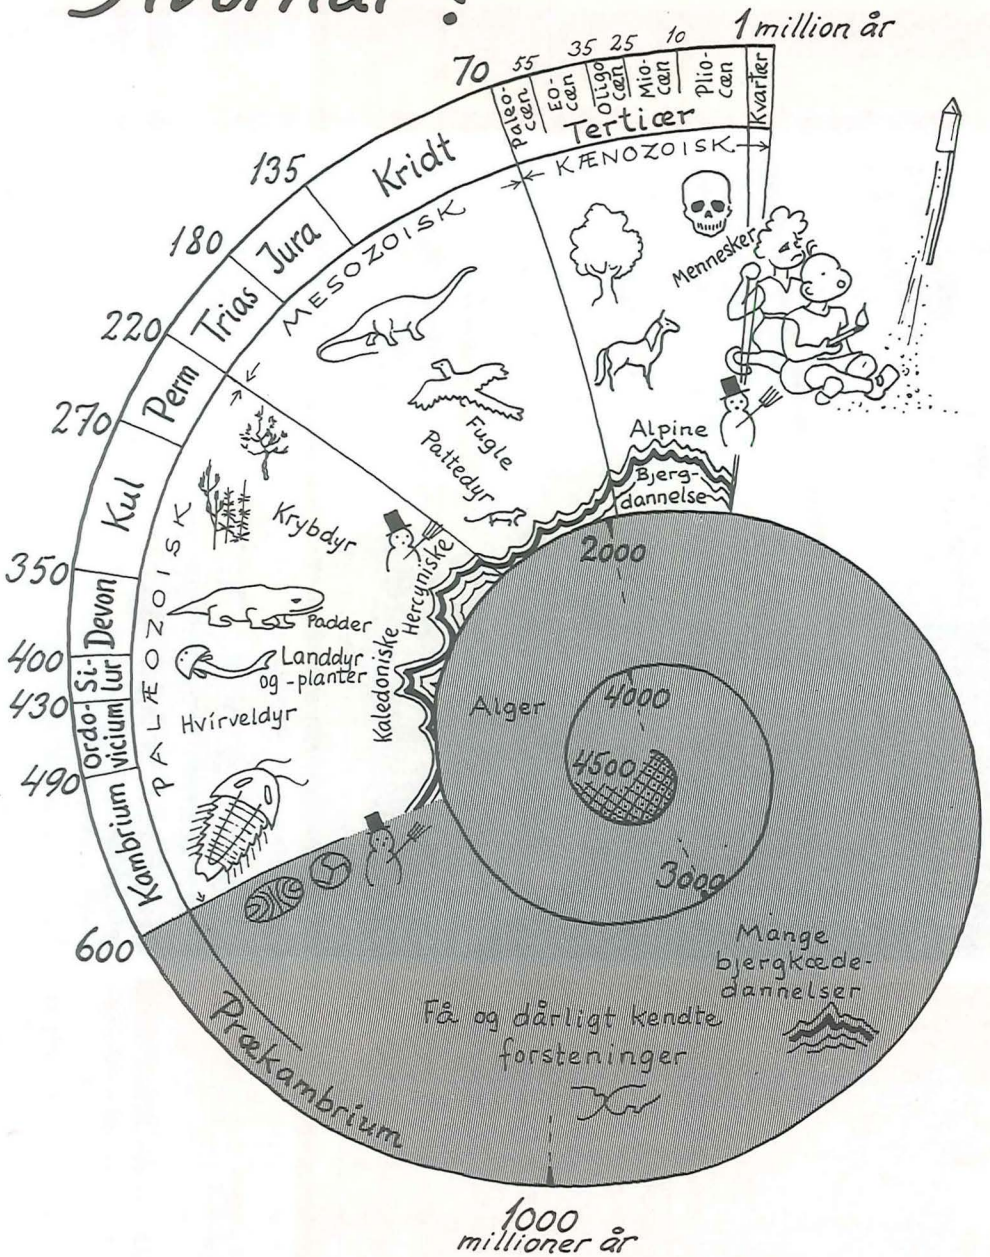 Hvornår?
1 million år
70
55
35
25
10
Paleo-
cæn
Eo-
cæn
Oligo
cæn
Mio-
cæn
Plio-
cæn
Kvartær
Tertiær
KÆNOZOISK
135
Kridt
180
Jura
MESOZOISK
220
Trias
270
Perm
Kul
350
Devon
400
Si-
lur
430
Ordo-
vicium
490
Kambrium
600
PALÆOZOISK
Mennesker
Fugle
Pattedyr
Alpine
Bjerg-
dannelse
Krybdyr
Hercyniske
Padder
Landdyr
og -planter
Kaledoniske
Hvirveldyr
2000
Alger
4000
4500
3000
Mange
bjergkæde-
dannelser
Få og dårligt kendte
forsteninger
Prækambrium
1000
millioner år